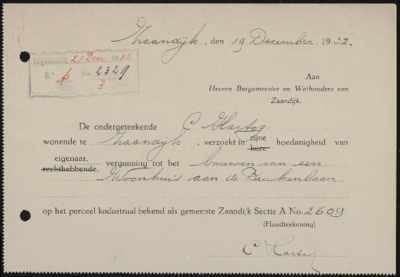 Zaandijk, den 19 December 1932.
21 Dec. 1932
No. 2329
3
Aan
Heeren Burgemeester en Wethouders van
Zaandijk.
De ondergeteekende C. Hartog
wonende te Zaandijk, verzoekt in zijne hare hoedanigheid van
eigenaar, rechthebbende, vergunning tot het bouwen van een
Woonhuis aan de Beukenlaan
op het perceel kadastraal bekend als gemeente Zaandijk Sectie A No. 2609.
(Handteekening)
C. Hartog